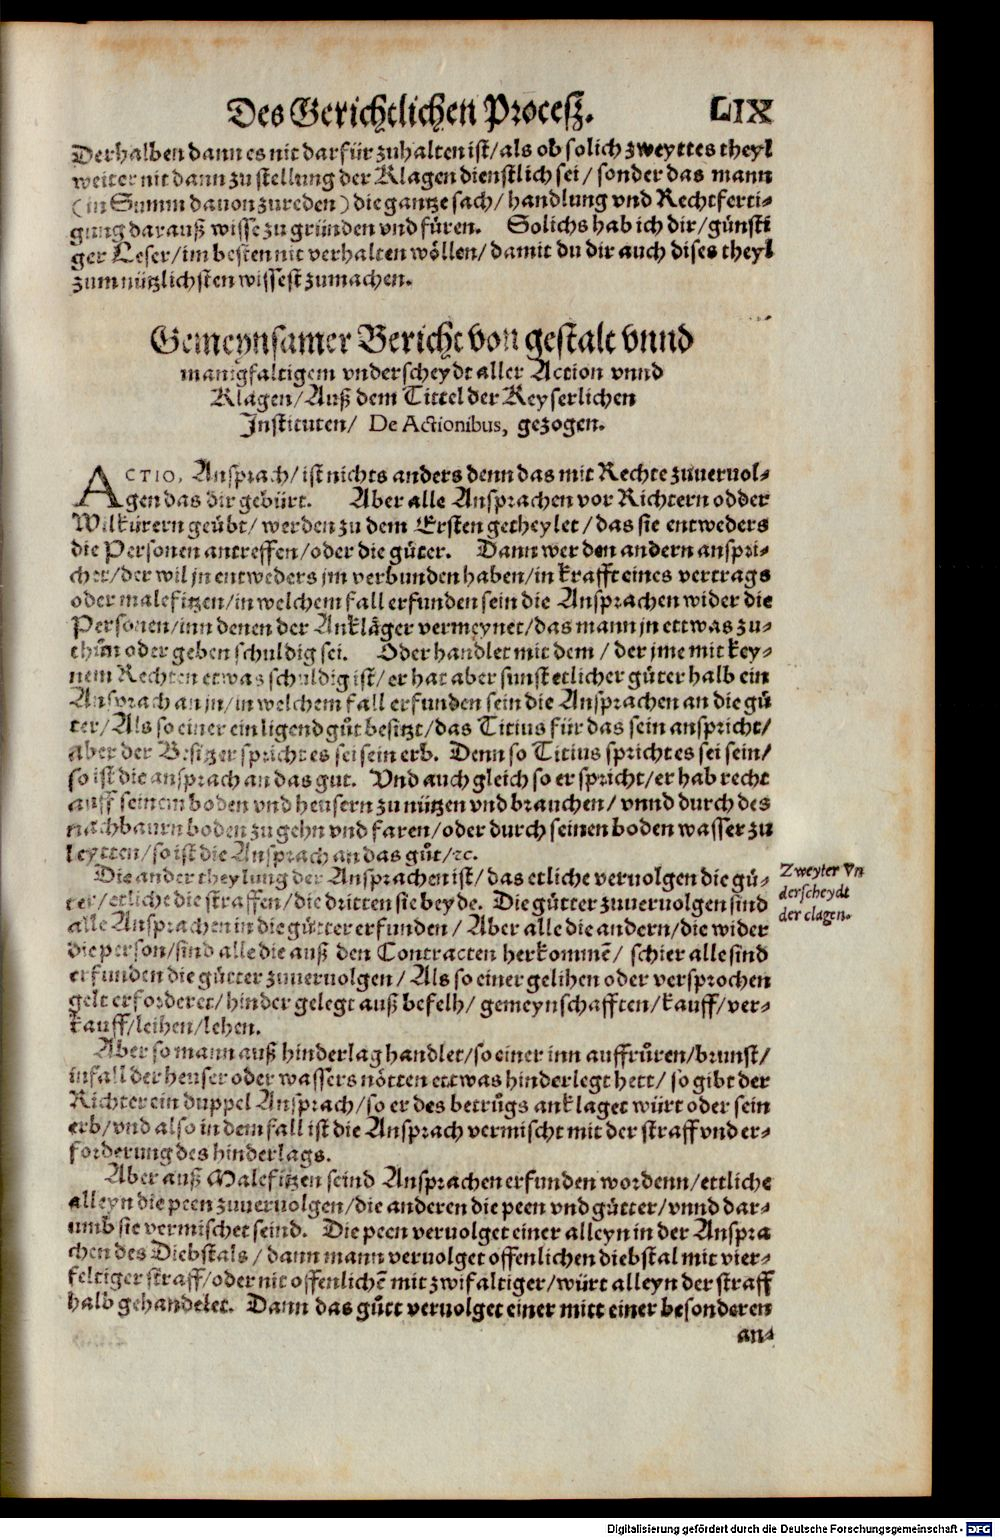 Des Gerichtlichen Proceſz. LIX
Derhalben dann es nit darfür zuhalten iſt/ als ob ſolich zweyttes theyl
weiter nit dann zu ſtellung der Klagen dienſtlich ſei/ ſonder das mann
(in Summ dauon zureden) die gantze ſach/ handlung vnd Rechtferti-
gung darauß wiſſe zu gründen vnd füren. Solichs hab ich dir/ günſti
ger Leſer/ im beſten nit verhalten wöllen/ damit du dir auch diſes theyl
zum nützlichſten wiſſeſt zumachen.
Gemeynſamer Bericht von geſtalt vnnd
manigfaltigem vnderſcheydt aller Action vnnd
Klagen/ Auß dem Tittel der Keyſerlichen
Inſtituten/ De Actionibus, gezogen.
ACTIO, Anſprach/ iſt nichts anders denn das mit Rechte zuuervol-
gen das dir gebürt. Aber alle Anſprachen vor Richtern odder
Wilkürern geübt/ werden zu dem Erſten getheylet/ das ſie entweders
die Perſonen antreffen/ oder die güter. Dann wer den andern anſpri-
chet/ der wil jn entweders jm verbunden haben/ in krafft eines vertrags
oder malefitzen/ in welchem fall erfunden ſein die Anſprachen wider die
Perſonen/ inn denen der Ankläger vermeynet/ das mann jn ettwas zu-
thůn oder geben ſchuldig ſei. Oder handlet mit dem/ der jme mit key-
nem Rechten etwas ſchuldig iſt/ er hat aber ſunſt etlicher güter halb ein
Anſprach an jn/ in welchem fall erfunden ſein die Anſprachen an die gü
ter/ Als ſo einer ein ligend gůt beſitzt/ das Titius für das ſein anſpricht/
aber der Beſitzer ſpricht es ſei ſein erb. Denn ſo Titius ſpricht es ſei ſein/
ſo iſt die anſprach an das gut. Vnd auch gleich ſo er ſpricht/ er hab recht
auff ſeinem boden vnd heuſern zu nützen vnd brauchen/ vnnd durch des
nachbaurn boden zu gehn vnd faren/ oder durch ſeinen boden waſſer zu
leytten/ ſo iſt die Anſprach an das gůt/ ꝛc.
Die ander theylung der Anſprachen iſt/ das etliche veruolgen die gü-
ter/ etliche die ſtraffen/ die dritten ſie beyde. Die gütter zuuervolgen ſind
alle Anſprachen in die gütter erfunden/ Aber alle die andern/ die wider
die perſon/ ſind alle die auß den Contracten herkommē/ ſchier alle ſind
erfunden die gütter zuuervolgen/ Als ſo einer gelihen oder verſprochen
gelt erforderet/ hinder gelegt auß befelh/ gemeynſchafften/ kauff/ ver-
kauff/ leihen/ lehen.
Zweyter Vn
derſcheydt
der clagen.
Aber ſo mann auß hinderlag handlet/ ſo einer inn auffrůren/ brunſt/
infall der heuſer oder waſſers nötten ettwas hinderlegt hett/ ſo gibt der
Richter ein duppel Anſprach/ ſo er des betrůgs anklaget würt oder ſein
erb/ vnd alſo in dem fall iſt die Anſprach vermiſcht mit der ſtraff vnd er-
forderung des hinderlags.
Aber auß Malefitzen ſeind Anſprachen erfunden wordenn/ ettliche
alleyn die peen zuuervolgen/ die anderen die peen vnd gütter/ vnnd dar-
umb ſie vermiſchet ſeind. Die peen veruolget einer alleyn in der Anſpra
chen des Diebſtals/ dann mann veruolget offenlichen diebſtal mit vier-
feltiger ſtraff/ oder nit offenlichē mit zwifaltiger/ würt alleyn der ſtraff
halb gehandelet. Dann das gůtt veruolget einer mitt einer beſonderen
an-
Digitalisierung gefördert durch die Deutsche Forschungsgemeinschaft - DFG